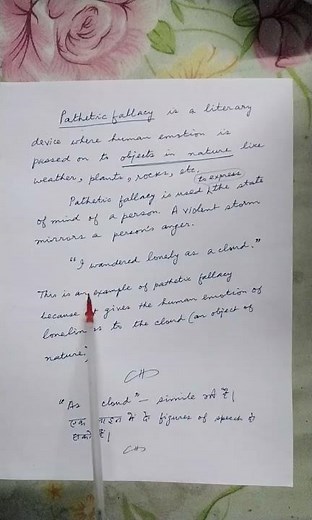 Pathetic fallacy is a literary
device where human emotion is
passed on to objects in nature like
weather, plants, rocks, etc.
to express
Pathetic fallacy is used, the state
of mind of a person. A violent storm
mirrors a person's anger.
"I wandered lonely as a cloud."
This is an example of pathetic fallacy
because it gives the human emotion of
lonelin ss to the cloud (an object of
nature)
"As cloud" – simile भी है।
एक लाइन में दो figures of speech हो
सकते हैं।